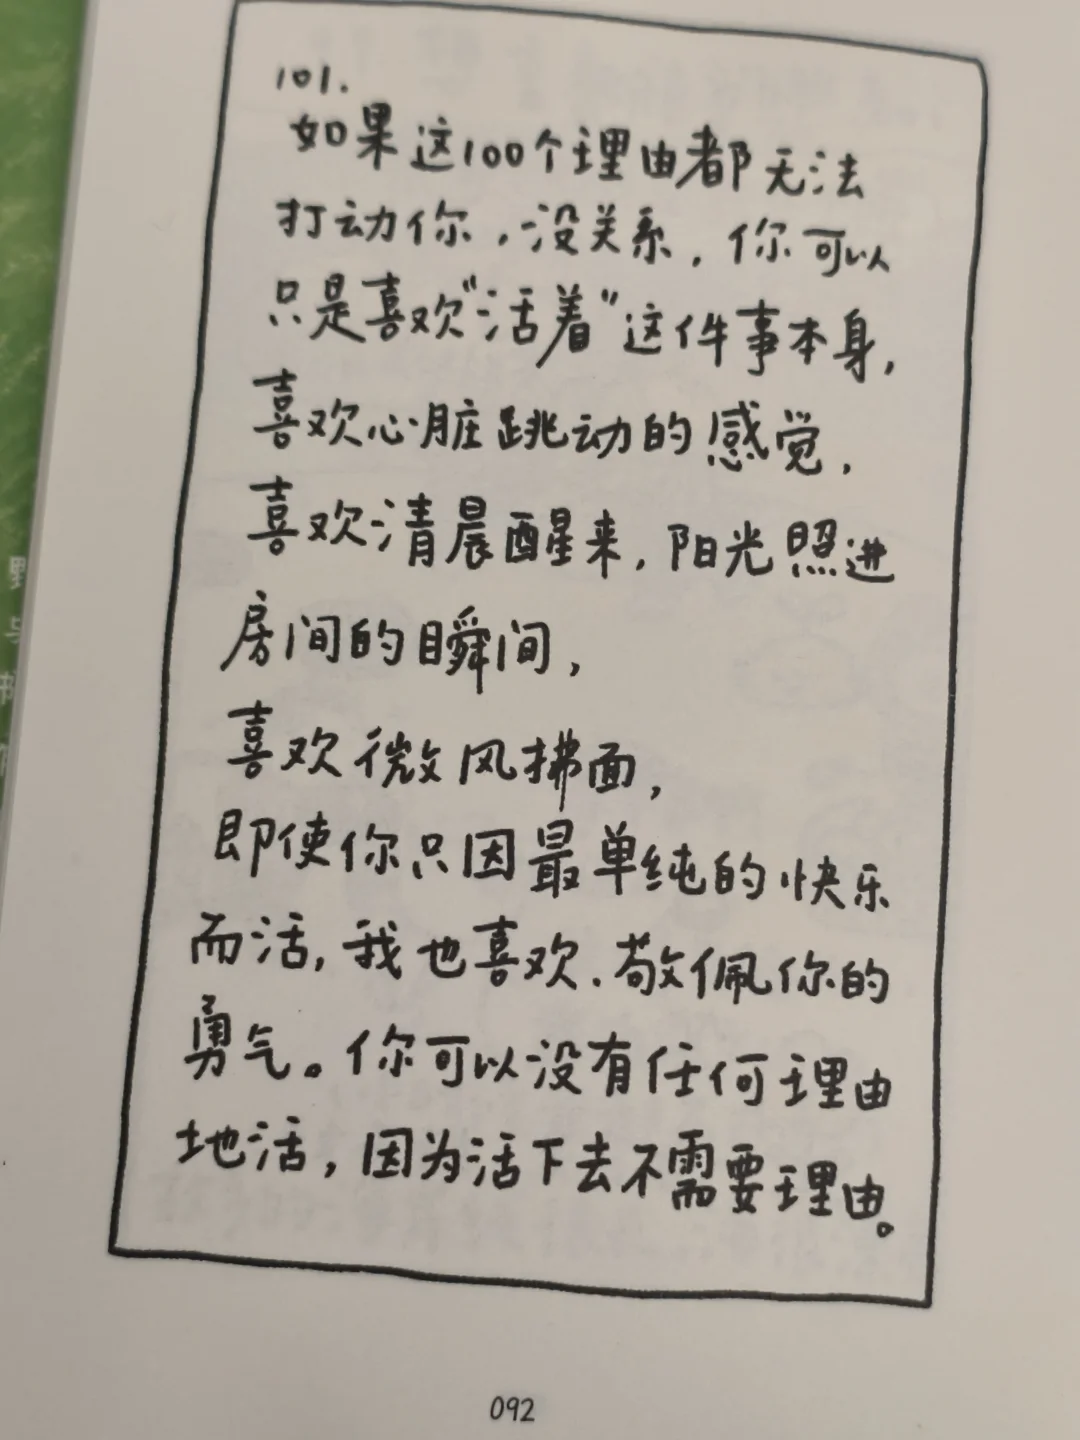 101.
如果这100个理由都无法
打动你，没关系，你可以
只是喜欢“活着”这件事本身，
喜欢心脏跳动的感觉，
喜欢清晨醒来，阳光照进
房间的瞬间，
喜欢微风拂面，
即使你只因最单纯的快乐
而活，我也喜欢、敬佩你的
勇气。你可以没有任何理由
地活，因为活下去不需要理由。
092